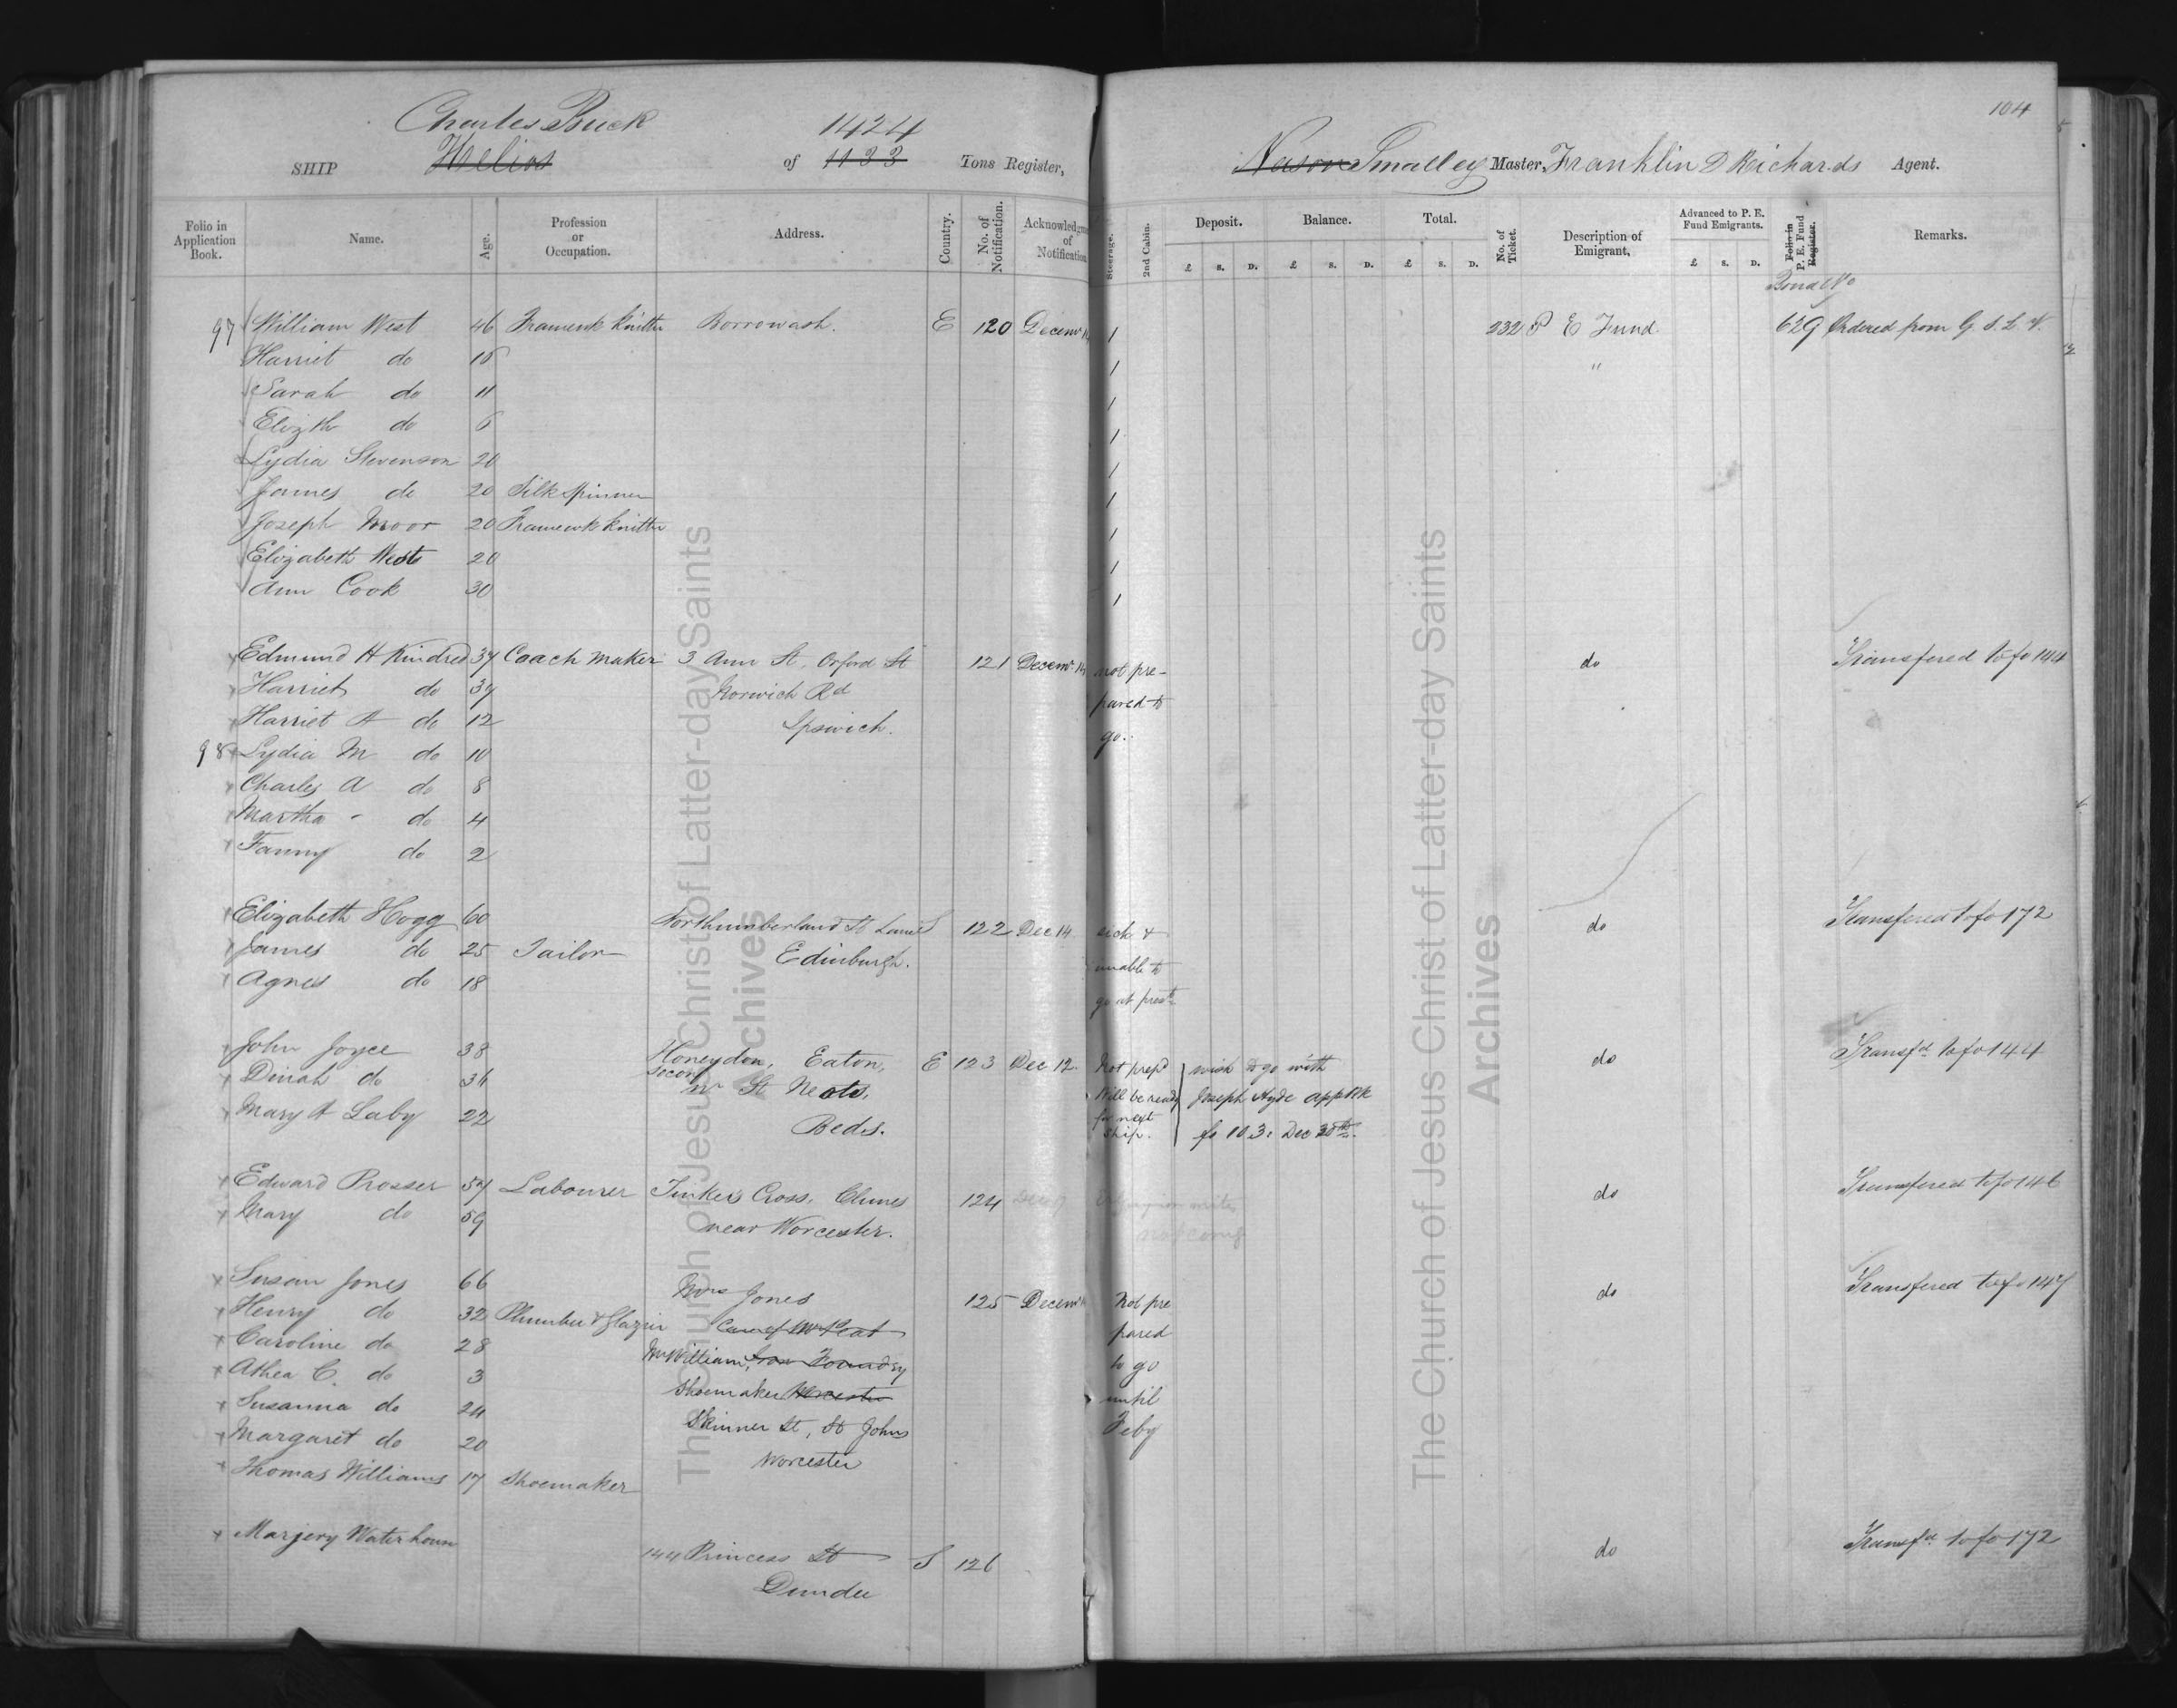 104
Charles Buck 1424
SHIP Helios of 1133 Tons Register, Nason Smalley Master, Franklin D Richards Agent.
Folio in Application Book. Name. Age. Profession or Occupation. Address. Country. No. of Notification. Acknowledgment of Notification Steerage. 2nd Cabin. Deposit. Balance. Total. No. of Ticket. Description of Emigrant. Advanced to P. E. Fund Emigrants. Folio in P. E. Fund Register. Remarks.
£ s. D. £ s. D. £ s. D. £ s. D.
Bond No
97 William West 46 Framewk Knitter Borrowash. E 120 Decemr 14 1 232 P E Fund 629 Ordered from G. S. L. V.
Harriet do 16 1 "
Sarah do 11 1
Elizth do 6 1
Lydia Stevenson 20 1
James do 20 Silk Spinner 1
Joseph Moor 20 Framewk Knitter 1
Elizabeth West 20 1
Ann Cook 30 1
Edmund H Kindred 37 Coach Maker 3 Ann St, Orford St 121 Decemr 14 not pre- do Transfered to fo 144
Harriet do 37 Norwich Rd pared to
Harriet A do 12 Ipswich. go.
98 Lydia M do 10
Charles A do 8
Martha - do 4
Fanny do 2
Elizabeth Hogg 60 Northumberland St Lane S 122 Dec 14 sick & do Transfered to fo 172
James do 25 Tailor Edinburgh. unable to
Agnes do 18 go at prest
John Joyce 38 Honeydon, Eaton, E 123 Dec 12. Not prepd wish to go with do Transfd to fo 144
Dinah do 36 Socon nr St Neots, Will be ready Joseph Hyde app Bk
Mary A Laby 22 Beds. for next ship. fo 103. Dec 30th.
Edward Prosser 57 Labourer Tinkers Cross, Clunes 124 Dec 17 do Transfered to fo 146
Mary do 59 near Worcester. not coming
Susan Jones 66 Mrs Jones 125 Decemr Not pre do Transfered to fo 147
Henry do 32 Plumber & Glazier Care of Mr Peat pared
Caroline do 28 Mr William, Iron Foundry to go
Athea C. do 3 Shoemaker Worcester until
Susanna do 24 Skinner St, St Johns Feby
Margaret do 20 Worcester
Thomas Williams 17 Shoemaker
Marjery Waterhouse 144 Princess St S 126 do Transfd to fo 172
Dundee
The Church of Jesus Christ of Latter-day Saints
Archives
The Church of Jesus Christ of Latter-day Saints
Archives